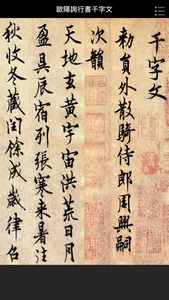 歐陽詢行書千字文
千字文
勅員外散騎侍郎周興嗣
次韻
天地玄黃宇宙洪荒日月
盈昃辰宿列張寒来暑往
秋收冬藏閏餘成歲律呂